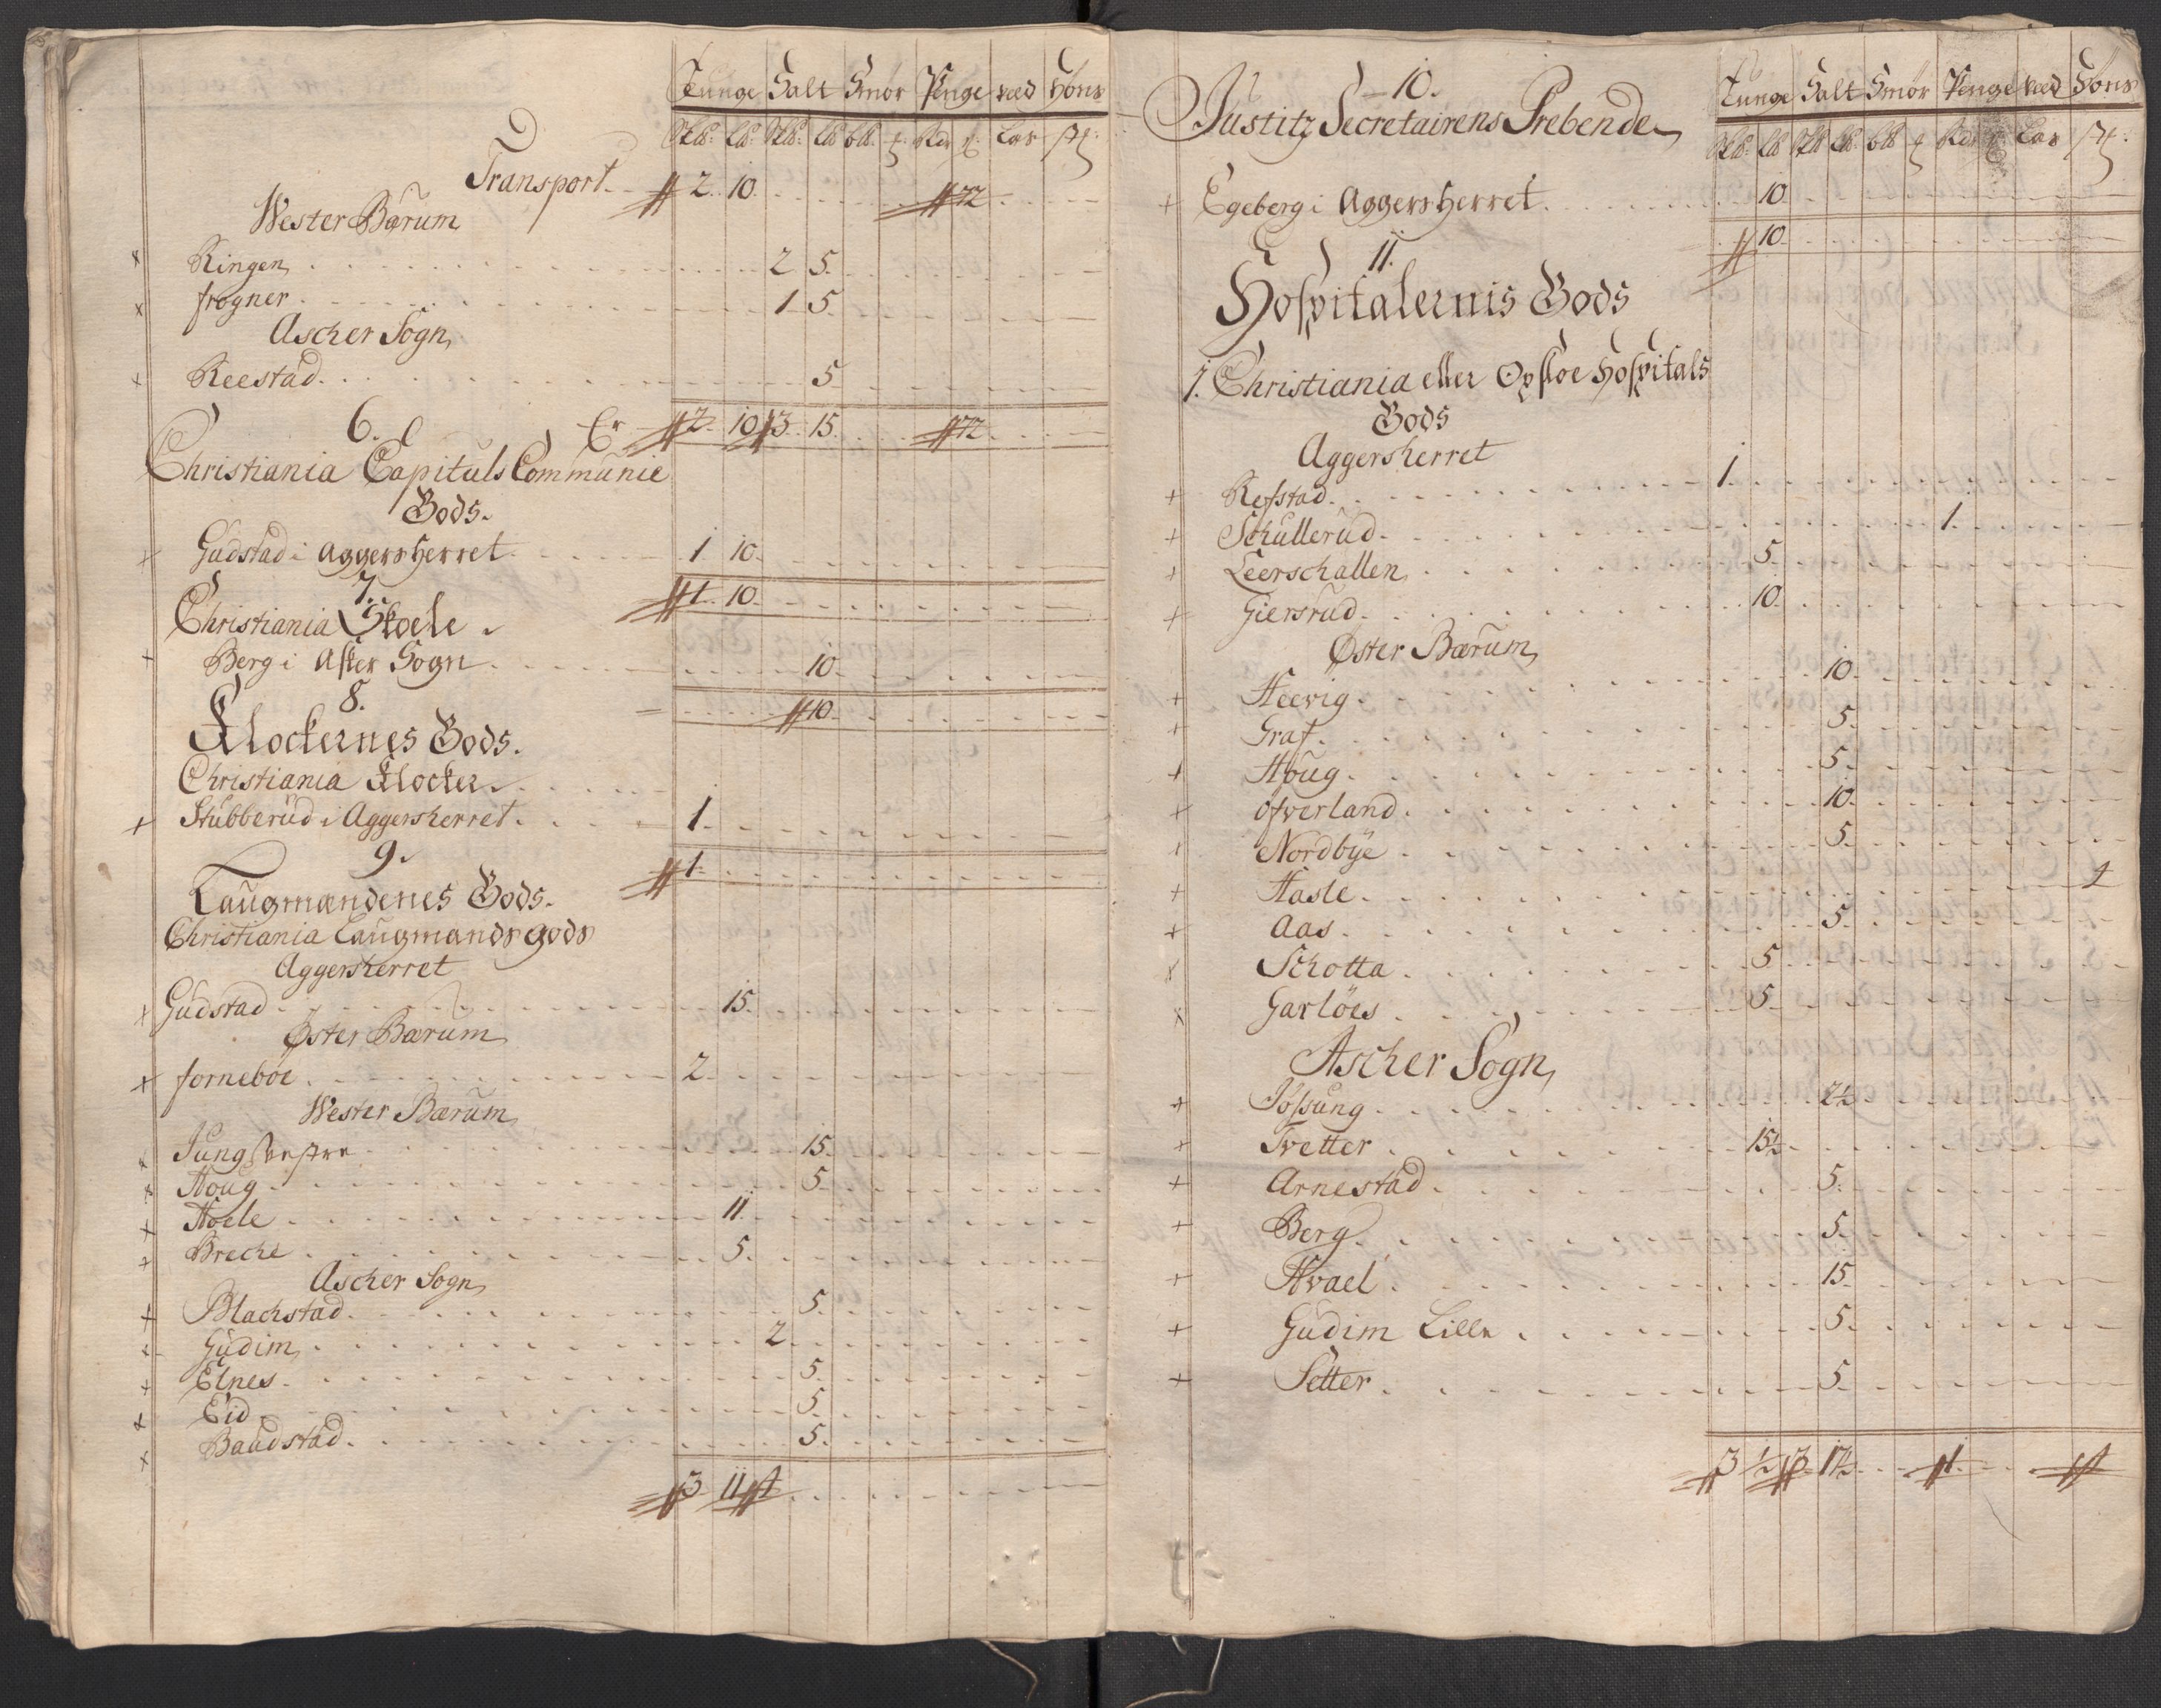 Tunge Salt Smør Penge ved Høns
Sk℔: L℔: Sk℔: L℔ b℔. Rdr Las
Transport. 2. 10. 72
Wester Bærum
Ringen 2 5.
frogner 1 5.
Ascher Sogn
Reestad 5
6. Er 2. 10 3. 15. 72.
Christiania Capituls Communie
Gods.
Gudstad i Aggersherret 1 10.
7. 1. 10.
Christiania Skoele
Berg i Asker Sogn 10.
8. 10.
Klockernes Gods.
Christiania Klocker
Stubberud i Aggersherret. 1.
9. 1.
Laugmandenes Gods.
Christiania Laugmands gods
Aggersherret
Gudstad 15.
Øster Bærum
forneböe 2.
Wester Bærum
Jung Vestre 15.
Houg 5.
Hoele 11.
Breche 5.
Ascher Sogn
Blachstad 5.
Gudim 2.
Elnes 5.
Eid 5.
Baadstad 5.
3 11 4
Tunge Salt Smør Penge ved Høns
Sk℔: L℔ Sk℔ L℔: b℔ Rdr Las
10.
Justitz Secretairens Prebende
Egeberg i Aggersherret 10.
10.
11.
Hospitalernis Gods
1. Christiania eller Opsloe Hospitals
Gods
Aggersherret
Refstad 1.
Schullerud 1.
Leerschallen 5.
Giersrud 10.
Øster Bærum
Heevig 10.
Graf 5.
Houg 5.
Ofverland 10.
Nordbye 5.
Hasle 1
Aas 5.
Schotta 5
Garlöes 5.
Ascher Sogn
Jossung 2½
Tvetter 15½
Arnestad 5.
Berg 5.
Hvael 15.
Gudim Lille 5.
Setter 5.
3 ½ 3 17½ 1. 1